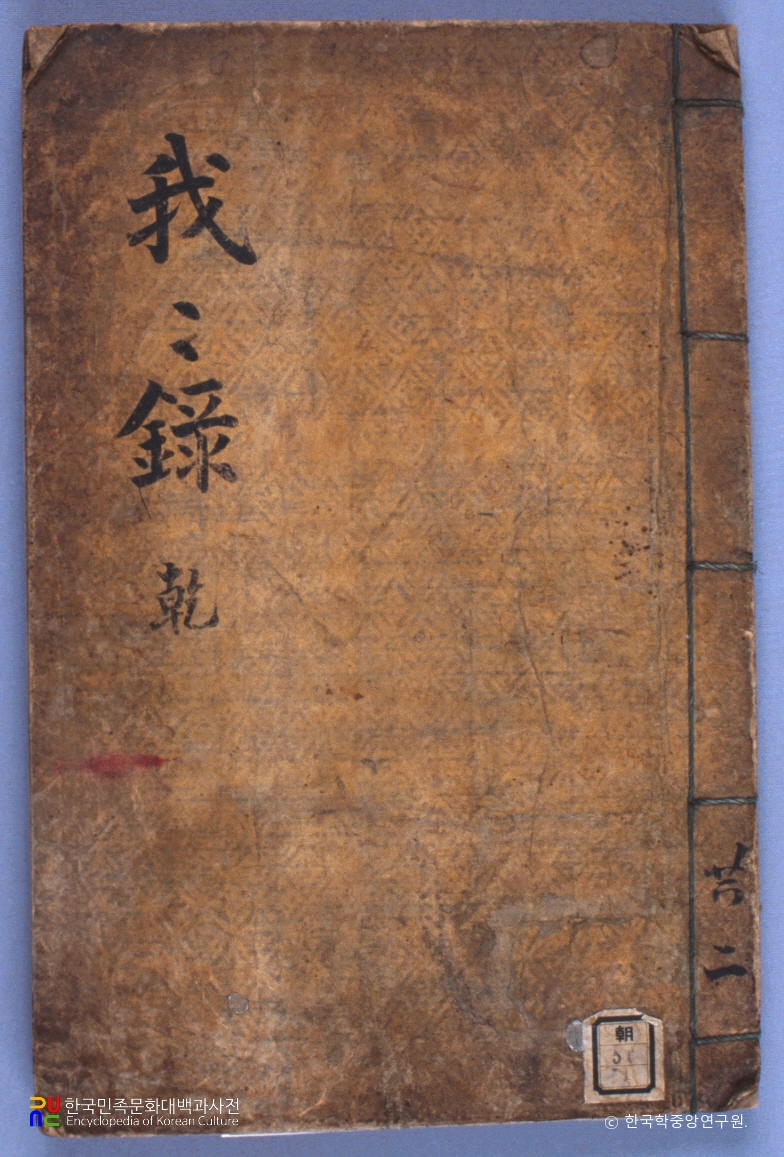 我〻錄 乾
共二
朝
한국민족문화대백과사전
Encyclopedia of Korean Culture
© 한국학중앙연구원.